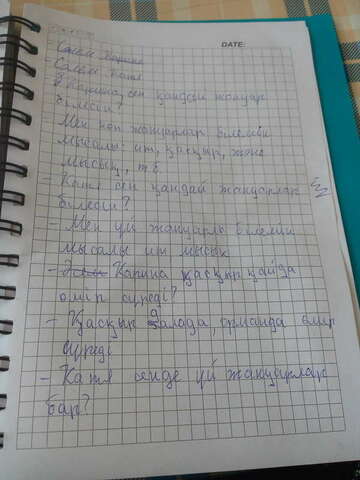 DATE:
Сәлем Карина
- Сәлем Катя
- Карина, сен қандай жануар
білесің?
Мен көп жануарлар білемін
Мысалы: ит, қасқыр, және
мысық, т.б.
- Катя сен қандай жануарлар
білесің?
- Мен үй жануарлы білемін
мысалы ит мысық
- Карина қасқыр қайда
өмір сүреді?
- Қасқыр далада, орманда өмір
сүреді
- Катя сенде үй жануарлар
бар?